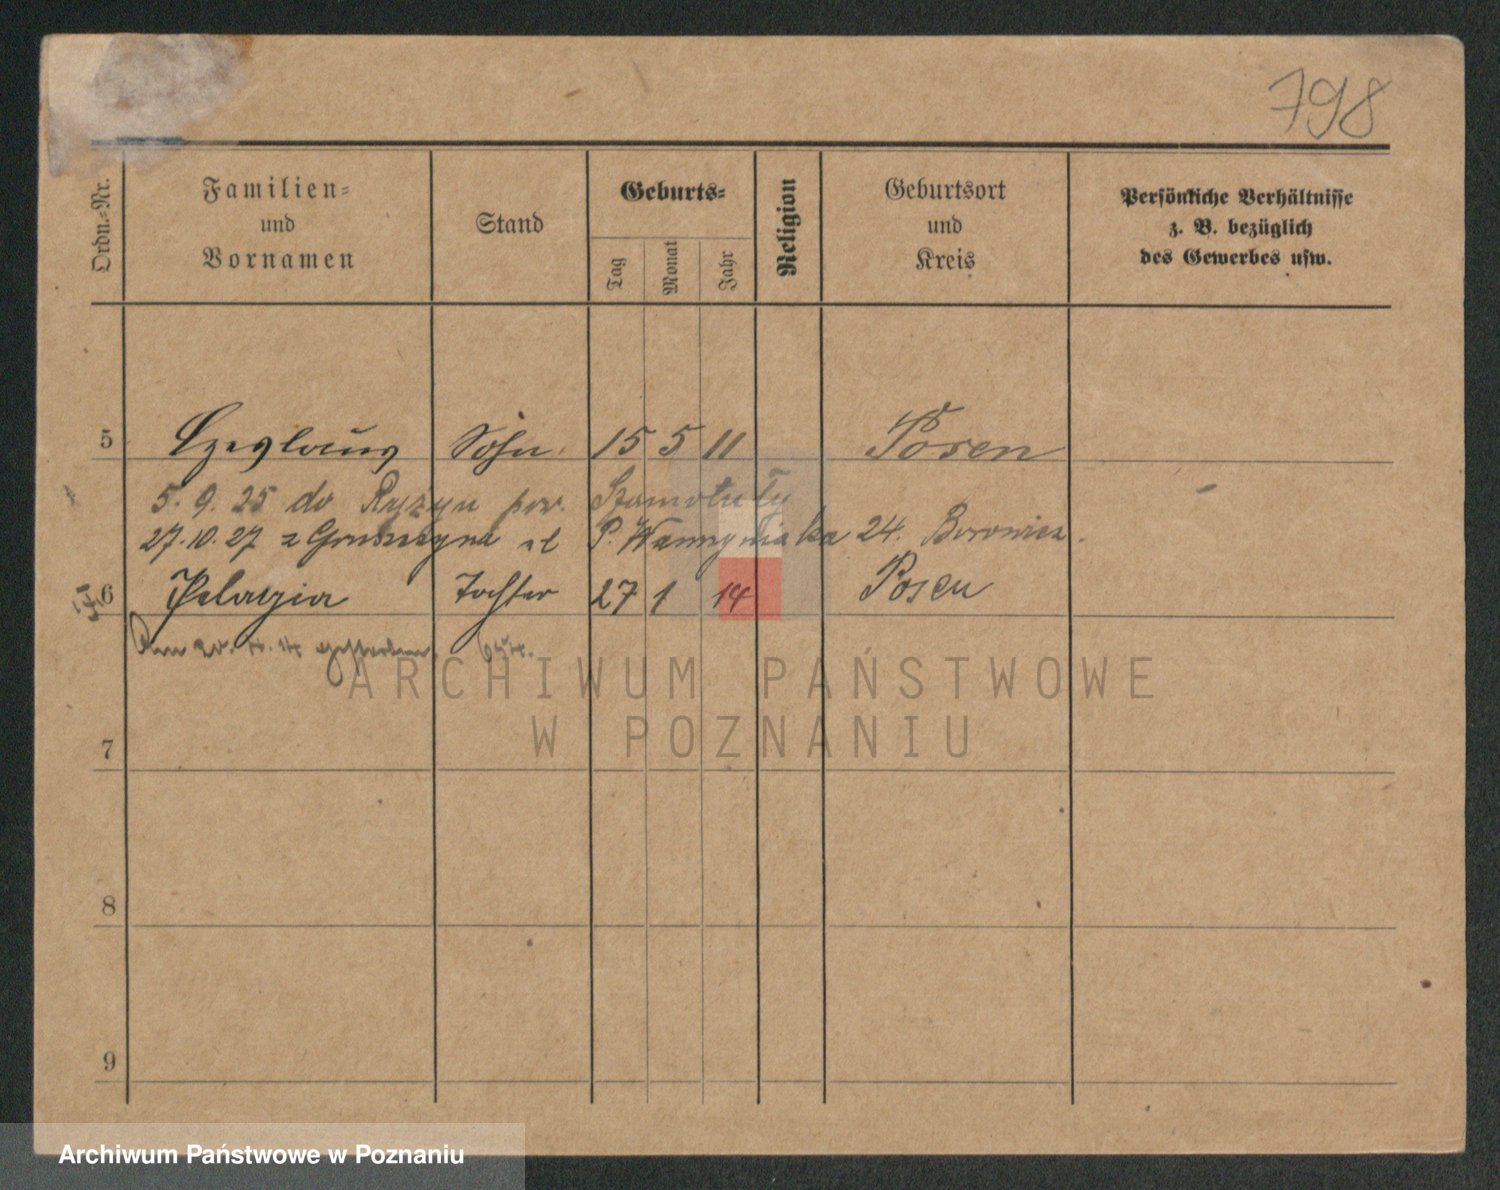 798
Ordn.-Nr.
Familien-
und
Vornamen
Stand
Geburts-
Tag
Monat
Jahr
Religion
Geburtsort
und
Kreis
Persönliche Verhältnisse
z. B. bezüglich
des Gewerbes usw.
5 Czeslaus Sohn 15 5 11 Posen
5. 9. 25 do Ryżyn pow. Szamotuły
27.10.27 z ul. P. Wawrzyniaka 24. Borowicz.
6 Pelagia Tochter 27 1 14 Posen
Am gestorben.
7
8
9
ARCHIWUM PAŃSTWOWE
W POZNANIU
Archiwum Państwowe w Poznaniu